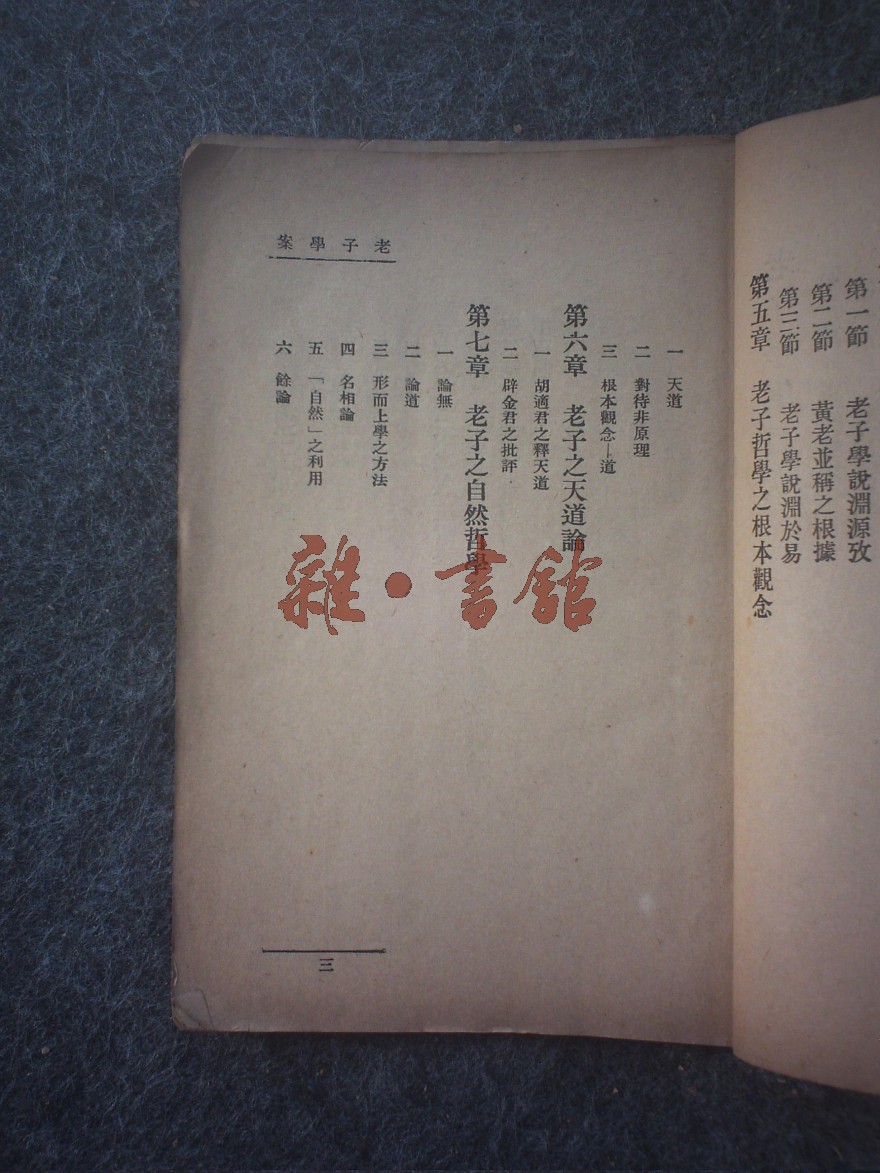 第一節　老子學說淵源攷
第二節　黃老並稱之根據
第三節　老子學說淵於易
第五章　老子哲學之根本觀念
老子學案
一　天道
二　對待非原理
三　根本觀念—道
第六章　老子之天道論
一　胡適君之釋天道
二　辟金君之批評
第七章　老子之自然哲學
一　論無
二　論道
三　形而上學之方法
四　名相論
五　「自然」之利用
六　餘論
三
雜·書館